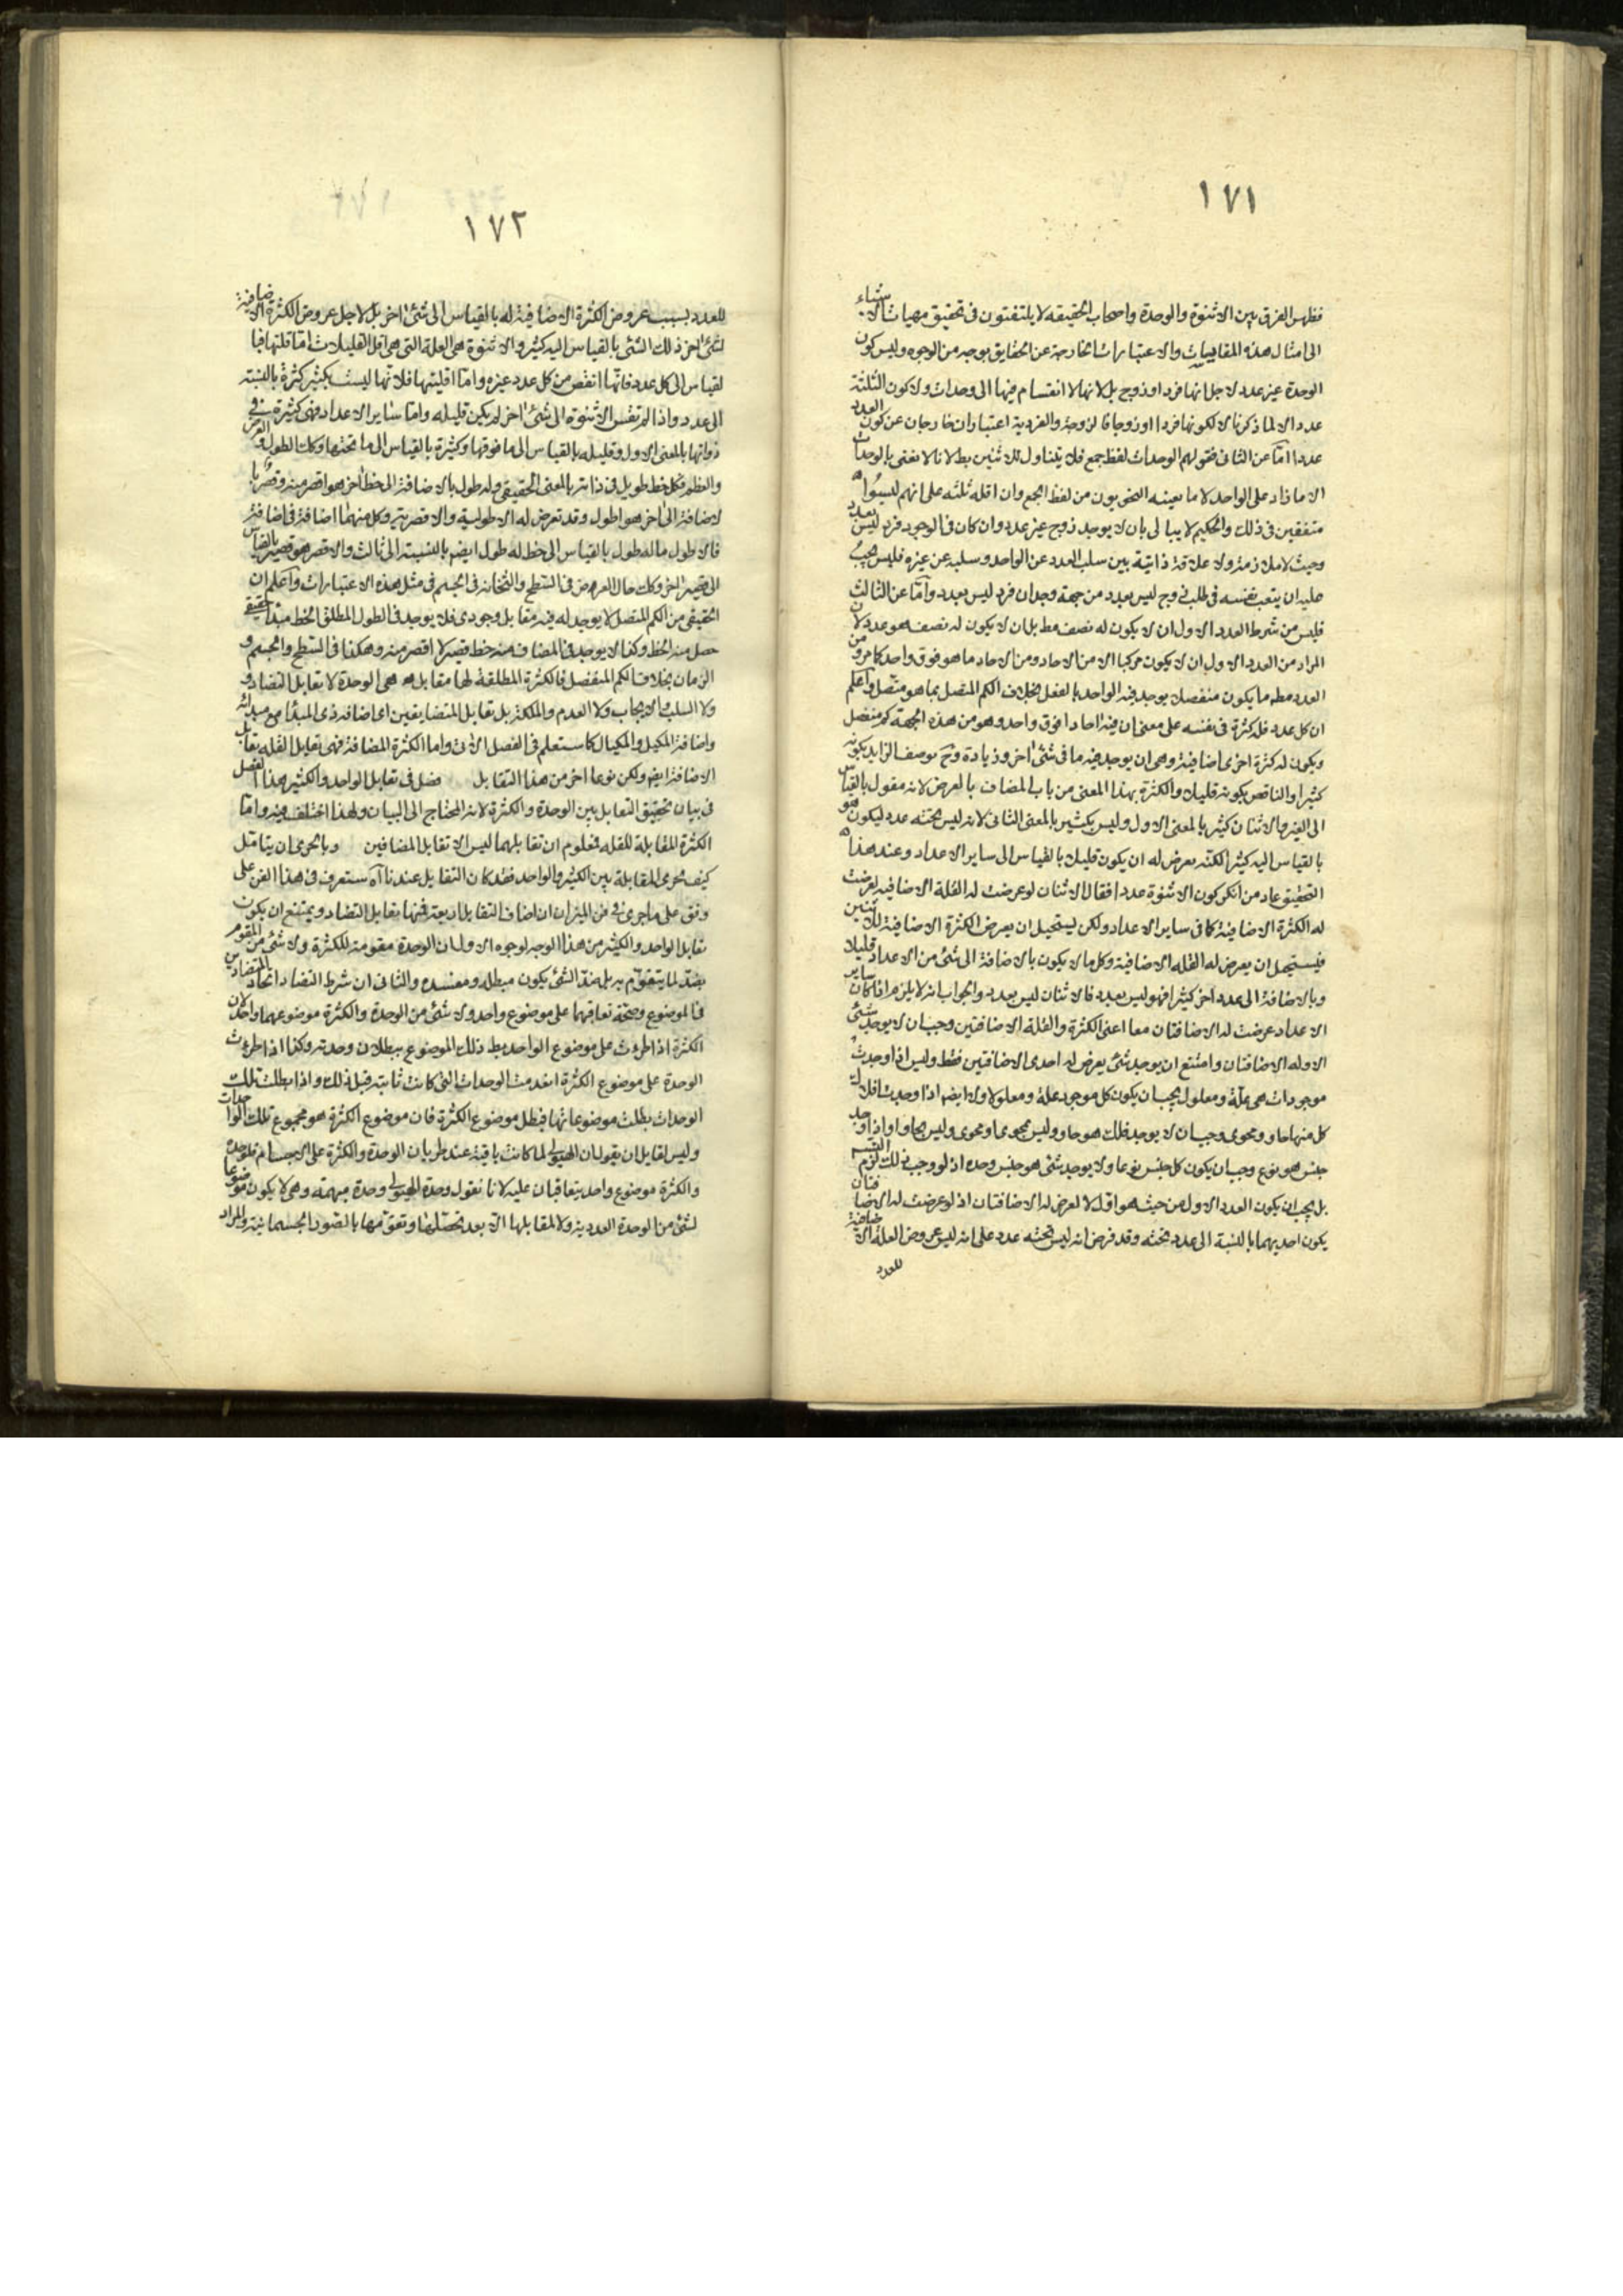 ١٧١
فظهر الفرق بين الاثنوة والوحدة واصحاب الحقيقه لا يلتفتون فى تحقيق مهيات الاشياء
الى امثال هذه المقاييسات والاعتبارات الخارجة عن الحقايق بوجه من الوجوه وليس كون
الوحدة غير عدد لاجل انها فرد او زوج بل لانها لا انقسام فيها الى وحدات ولا كون الثلثة
عددا الا لما ذكرنا لا لكونها فردا او زوجا فالزوجية والفردية اعتباران خارجان عن كون العدد
عددا امّا عن الثانى فقولهم الوحدات لفظ جمع فلا يتناول للاثنين بط لانا لا نعنى بالوحدات
الا ما زاد على الواحد لا ما يعنيه النحويون من لفظ الجمع وان اقله ثلثه على انهم ليسوا
متفقين فى ذلك والحكيم لا يبالى بان لا يوجد زوج غير عدد وان كان فى الوجود فرد ليس بعدد
وحيث لا ملازمة ولا علاقة ذاتية بين سلب العدد عن الواحد وسلبه عن غيره فليس يجب
عليه ان يتعب نفسه فى طلب زوج ليس بعدد من جهة وجدان فرد ليس بعدد وامّا عن الثالث
فليس من شرط العدد الاول ان لا يكون له نصف مط بل ان لا يكون له نصف هو عدد لان
المراد من العدد الاول ان لا يكون مركبا الا من الاحاد ومن الاحاد ما هو فوق واحد كما مر ومن
العدد مطه ما يكون منفصلا يوجد فيه الواحد بالفعل بخلاف الكم المتصل بما هو متّصل واعلم
ان كل عدد فله كثرة فى نفسه على معنى ان فيه احادا فوق واحد وهو من هذه الجهة كم منفصل
ويكون له كثرة اخرى اضافية وهى ان يوجد فيه ما فى شئ اخر وزيادة وح يوصف الزايد بكونه
كثيرا والناقص بكونه قليلا والكثرة بهذا المعنى من باب المضاف بالعرض لانه مقول بالقياس
الى الغير والاثنان كثير بالمعنى الاول وليس بكثير بالمعنى الثانى لانه ليس تحته عدد ليكون هو
بالقياس اليه كثيرا لكنه يعرض له ان يكون قليلا بالقياس الى ساير الاعداد وعند هذا
التحقيق عاد من انكر كون الاثنوة عددا فقال الاثنان لو عرضت له القلة الاضافيه لعرضت
له الكثرة الاضافية كما فى ساير الاعداد ولكن يستحيل ان يعرض الكثرة الاضافية للاثنين
فيستحيل ان يعرض له القله الاضافية وكل ما لا يكون بالاضافة الى شئ من الاعداد قليلا
وبالاضافة الى عدد اخر كثيرا فهو ليس بعدد فالاثنان ليس بعدد والجواب انه لا يلزم اذا كان ساير
الاعداد عرضت له الاضافتان معا اعنى الكثرة والقلة الاضافتين وجب ان لا يوجد شئ
الا وله الاضافتان وامتنع ان يوجد شئ يعرض له احدى الاضافتين فقط وليس اذا وجدت
موجودات هى علّة ومعلول يجب ان يكون كل موجود علة ومعلولا ولا ايضا اذا وجدت افلاك
كل منها حاو ومحوى وجب ان لا يوجد فلك هو حاو وليس بمحوى او محوى وليس بحاو او اذا وجد
جنس هو نوع وجب ان يكون كل جنس نوعا ولا يوجد شئ هو جنس وحده اذ لو وجب ذلك لزم التسم
بل يجب ان يكون العدد الاول من حيث هو اول لا تعرض له الاضافتان اذ لو عرضت له الاضافتان
يكون احديهما بالنسبة الى عدد تحته وقد فرض انه ليس تحته عدد على انه ليس عروض القلة الاضافية
للعدد
١٧٢
للعدد بسبب عروض الكثرة الاضافية له بالقياس الى شئ اخر بل لاجل عروض الكثرة الاضافية
لشئ اخر ذلك الشئ بالقياس اليه كثير والاثنوة هى القلة التى هى اقل القليلات امّا قلتها فبا
لقياس الى كل عدد فانّها انقص من كل عدد غيره وامّا اقليتها فلانّها ليست بكثير كثرة بالنسبه
الى عدد واذا لم تقس الاثنوة الى شئ اخر لم يكن قليله وامّا ساير الاعداد فهى كثيرة فى
ذواتها بالمعنى الاول وقليله بالقياس الى ما فوقها وكثيرة بالقياس الى ما تحتها وكك الطول والعرض
والعظم فكل خط طويل فى ذاته بالمعنى الحقيقى وله طول بالاضافة الى خط اخر هو اقصر منه وقصر با
لاضافة الى اخر هو اطول وقد تعرض له الاطولية والاقصرية وكل منهما اضافة فى اضافة
فالاطول ما له طول بالقياس الى خط له طول ايضا بالنسبة الى ثالث والاقصر هو قصير بالقياس
الى قصير اخر وكك حال العرض فى السّطح والثخانه فى الجسم فى مثل هذه الاعتبارات واعلم ان
الحقيقى من الكم المتصل لا يوجد له فيه مقابل وجودى فلا يوجد فى الطول المطلق الخط مبدا حقيقى
حصل منه الخط وكذا لا يوجد فى المضاف منه خط قصير لا اقصر منه وهكذا فى السّطح والجسم و
الزمان بخلاف الكم المنفصل فالكثرة المطلقة لها مقابل هى الوحدة لا تقابل التضاد و
ولا السلب والايجاب ولا العدم والملكة بل تقابل المتضايفين اى اضافة ذى المبدأ مع مبدائه
واضافة المكيل والمكيال كما ستعلم فى الفصل الاتى واما الكثرة المضافة فهى تقابل القله تقابل
الاضافة ايضا ولكن نوعا اخر من هذا التقابل فصل فى تقابل الواحد والكثير هذا الفصل
فى بيان تحقيق التقابل بين الوحدة والكثرة لانه المحتاج الى البيان ولهذا اختلف فيه وامّا
الكثرة المقابلة للقله فمعلوم ان تقابلهما ليس الا تقابل المضافين وبالحرى ان يتامّل
كيف يجرى المقابلة بين الكثير والواحد فقد كان التقابل عندنا آه ستعرف فى هذا الفن على
وفق على ما جرى فى فن الميزان ان اصناف التقابل اربعة فمنها تقابل التضاد ويمتنع ان يكون
تقابل الواحد والكثير من هذا الوجه لوجوه الاول ان الوحدة مقومة للكثرة ولا شئ من المقوم
بضدّ لما يتقوّم به بل ضدّ الشئ يكون مبطله ومفسده والثانى ان شرط التضاد اتحاد المتضادين
فى الموضوع وصحّة تعاقبهما على موضوع واحد ولا شئ من الوحدة والكثرة موضوعهما واحد لان
الكثرة اذا طرئت على موضوع الواحد بطل ذلك الموضوع ببطلان وحدته وكذا اذا طرئت
الوحدة على موضوع الكثرة انعدمت الوحدات التى كانت ثابته قبل ذلك واذا بطلت تلك
الوحدات بطلت موضوعاتها فبطل موضوع الكثرة فان موضوع الكثرة هو مجموع تلك الواحدات
وليس لقايل ان يقول ان الهيولى لما كانت باقية عند طريان الوحدة والكثرة على الاجسام فالوحدة
والكثرة موضوع واحد يتعاقبان عليه لانا نقول وحدة الهيولى وحدة مبهمة وهى لا يكون موضوعا
لشئ من الوحدة العددية ولا لمقابلها الّا بعد تحصّلها وتقوّمها بالصّور الجسمانية والمراد